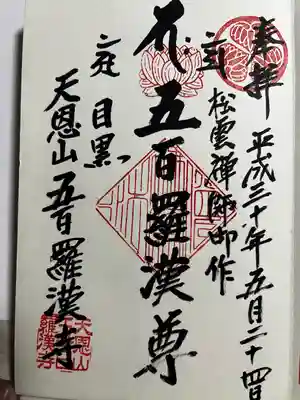 奉拝 平成三十年五月二十四日
元禄 松雲禅師御作
五百羅漢尊
目黒
天恩山 五百羅漢寺
天恩山
羅漢寺